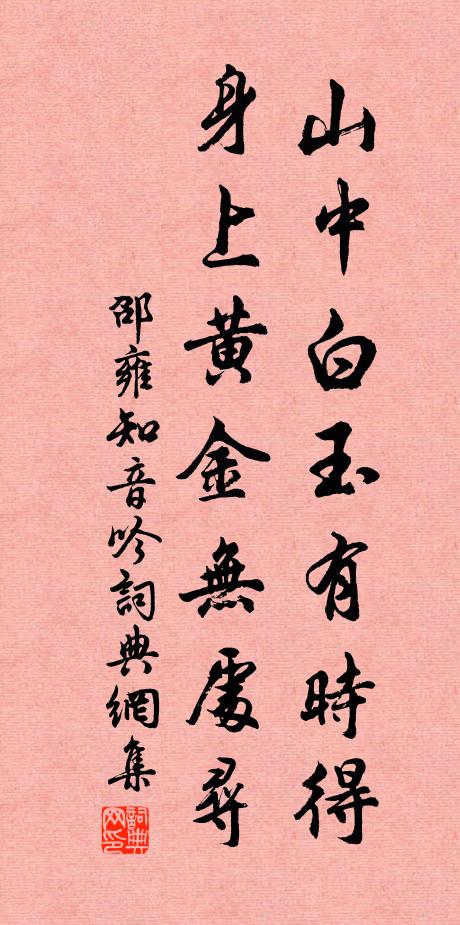 山中白玉有時得
身上黃金無處尋
邵雍知音吟詞典網集
詞典
网印